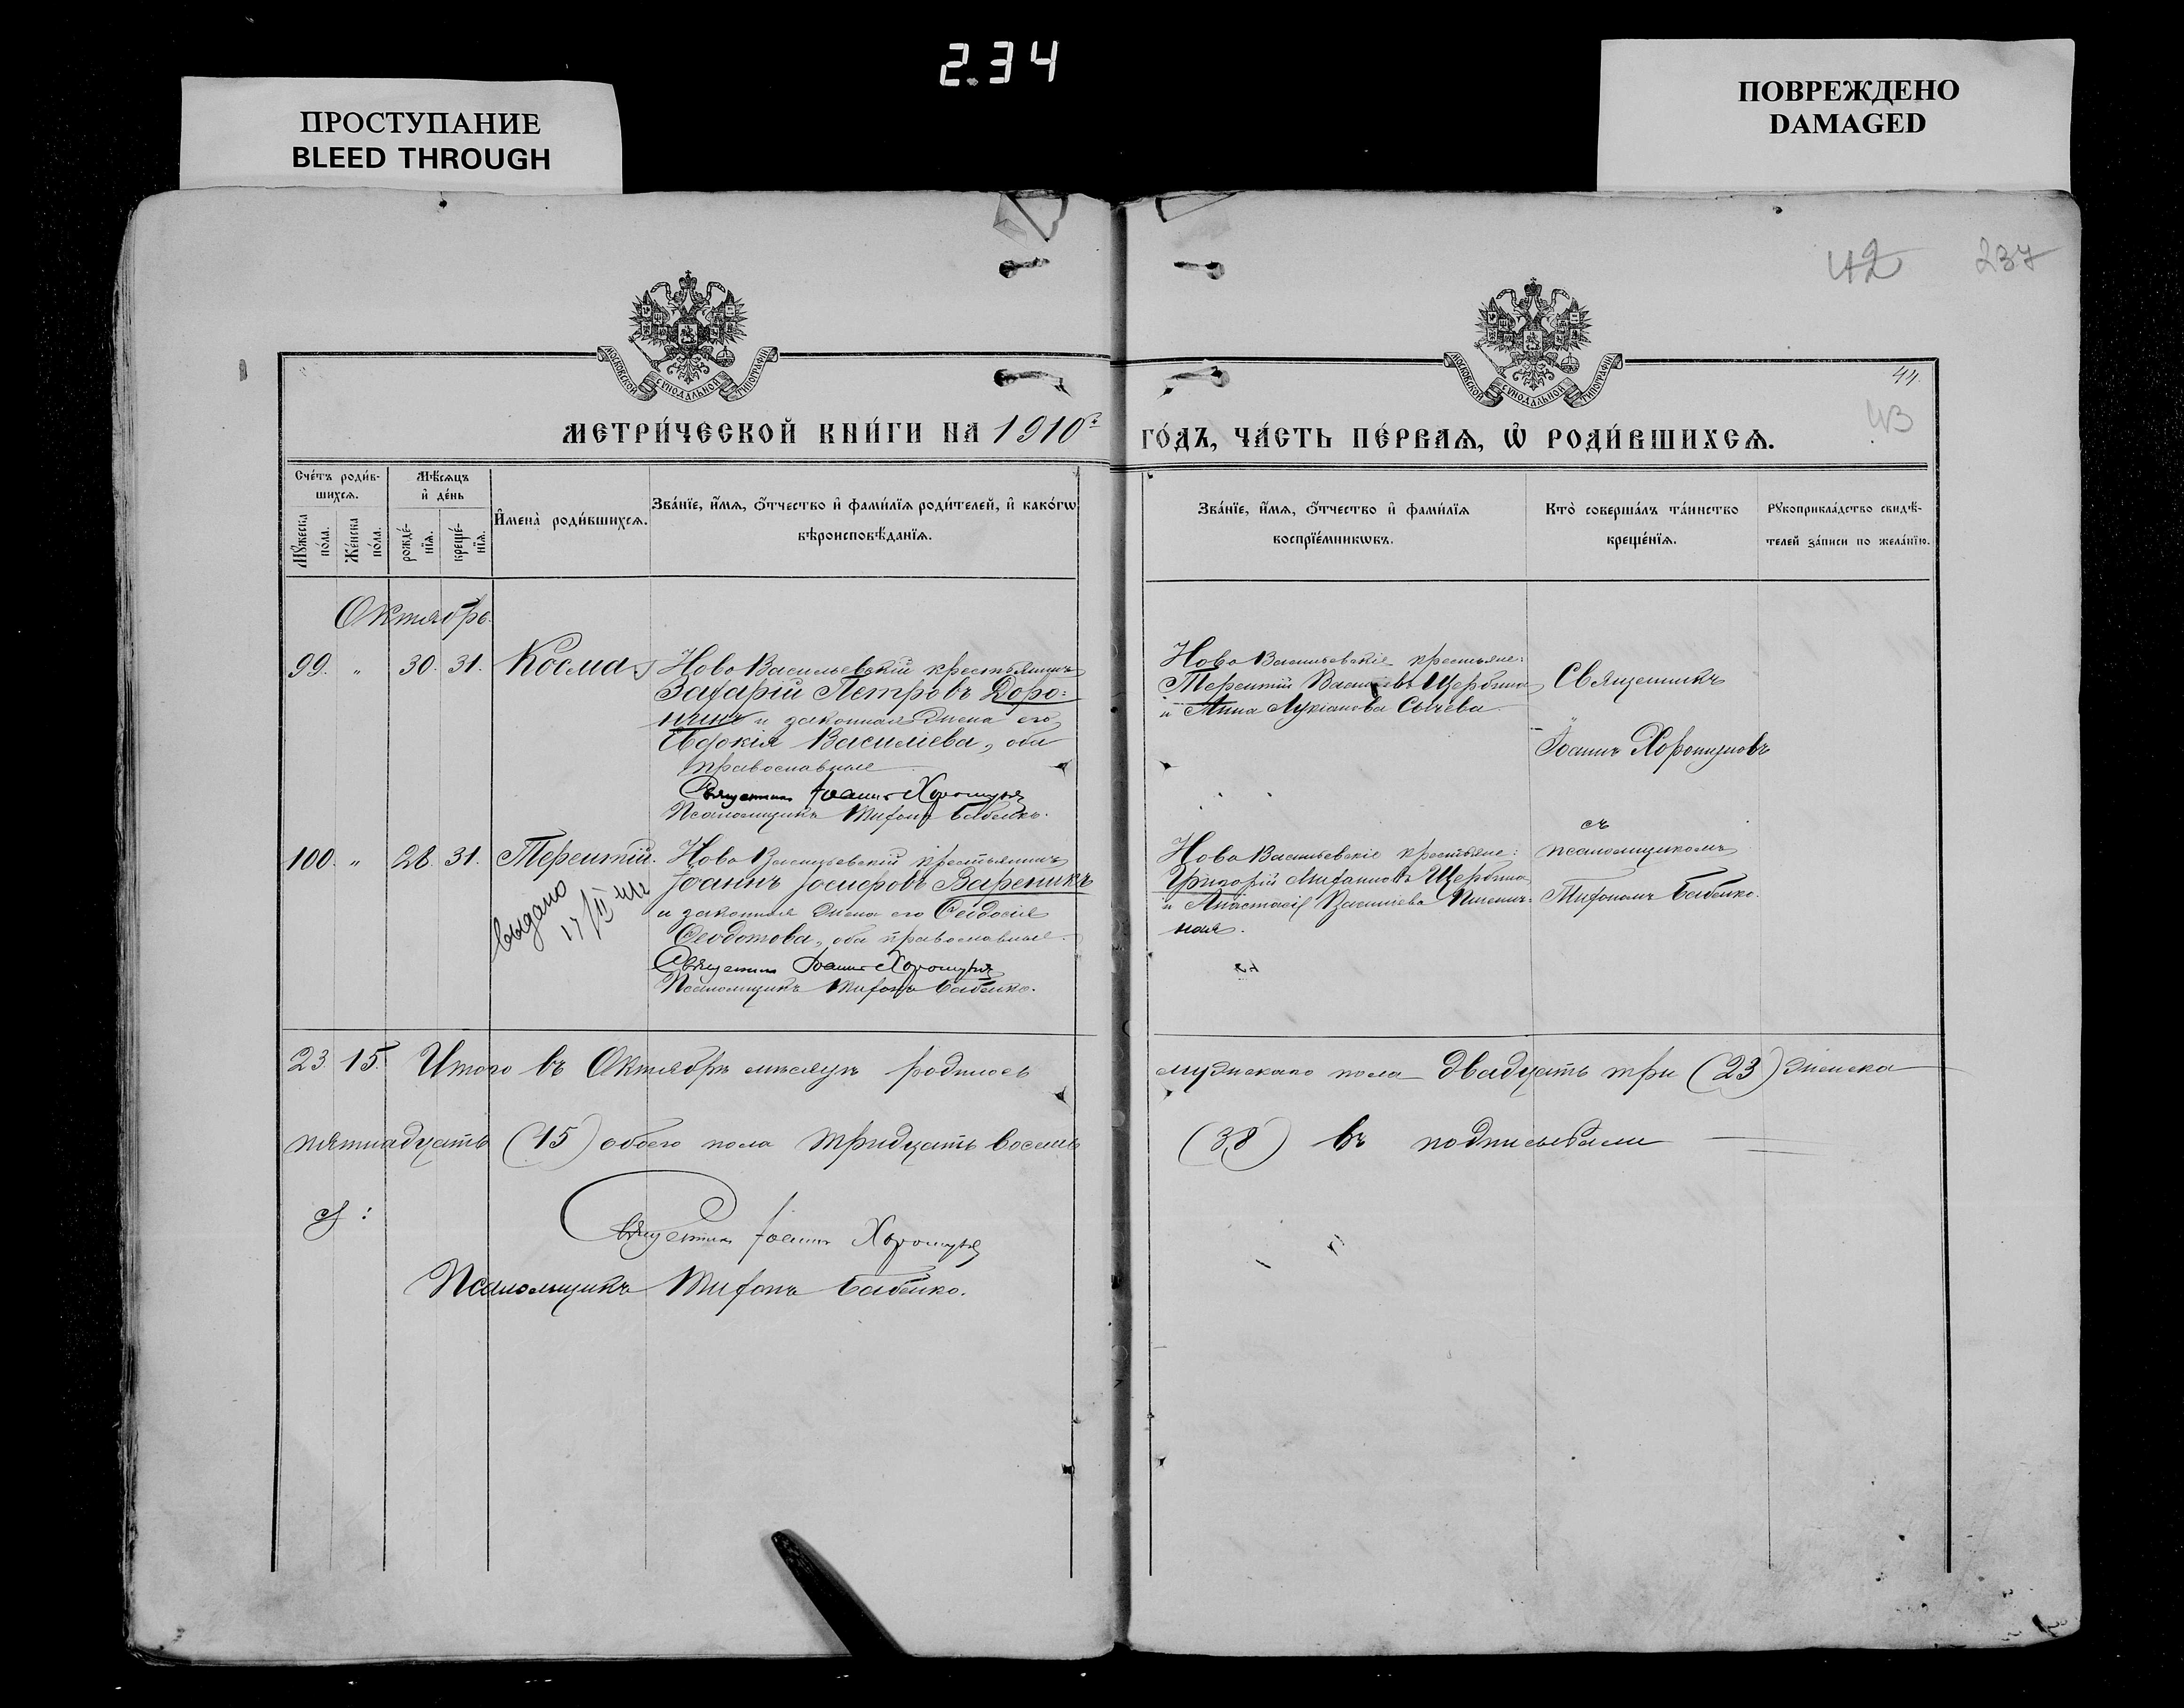 2.34
ПРОСТУПАНИЕ
BLEED THROUGH
ПОВРЕЖДЕНО
DAMAGED
42 237
МОСКОВСКОЙ СѴНОДАЛЬНОЙ ТИПОГРАФІИ
МОСКОВСКОЙ СѴНОДАЛЬНОЙ ТИПОГРАФІИ
44.
43
МЕТРИ́ЧЕСКОЙ КНИ́ГИ НА 1910 ГО́ДЪ, ЧА́СТЬ ПЕ́РВАѦ, Ѡ҆ РОДИ́ВШИХСѦ.
Сче́тъ роди́в-
шихсѧ.
Мꙋ́жеска
по́ла.
Же́нска
по́ла.
Мѣ́сѧцъ
и҆ де́нь
рожде́-
нїѧ.
креще́-
нїѧ.
И҆мена̀ роди́вшихсѧ.
Зва́нїе, и҆́мѧ, ѻ҆́тчество и҆ фами́лїѧ роди́телей, и҆ како́гѡ
вѣроисповѣ́данїѧ.
Зва́нїе, и҆́мѧ, ѻ҆́тчество и҆ фами́лїѧ
воспрїе́мникѡвъ.
Кто̀ соверша́лъ та́инство
креще́нїѧ.
Рꙋкоприкла́дство свидѣ́-
телей за́писи по жела́нїю.
Октябрь.
99. " 30. 31. Косма
Ново Васильевскій крестьянинъ
Захарій Петровъ Доро=
нинъ и законная жена его
Евдокія Василіева, оба
православные
Священникъ Іоаннъ Хорошуновъ
Псаломщикъ Тифонъ Бабенко.
Ново Васильевскіе крестьяне:
Терентій Васильевъ Щербина
и Анна Лукіанова Сычева
Священникъ
Іоаннъ Хорошуновъ
100. " 28. 31. Терентій.
выдано
17/II
Ново Васильевскій крестьянинъ
Іоаннъ Іосифовъ Вареникъ
и законная жена его Феодосія
Феодотова, оба православные.
Священникъ Іоаннъ Хорошуновъ
Псаломщикъ Тифонъ Бабенко.
Ново Васильевскіе крестьяне:
Григорій Щербина
и Анастасія Василіева Пшенич=
ная.
съ
псаломщикомъ
Тифономъ Бабенко.
23. 15. Итого въ Октябрѣ мѣсяцѣ родилось мужескаго пола двадцать три (23) женска
пятнадцать (15) обоего пола тридцать восемь (38) въ подписывали
Священникъ Іоаннъ Хорошуновъ
Псаломщикъ Тифонъ Бабенко.